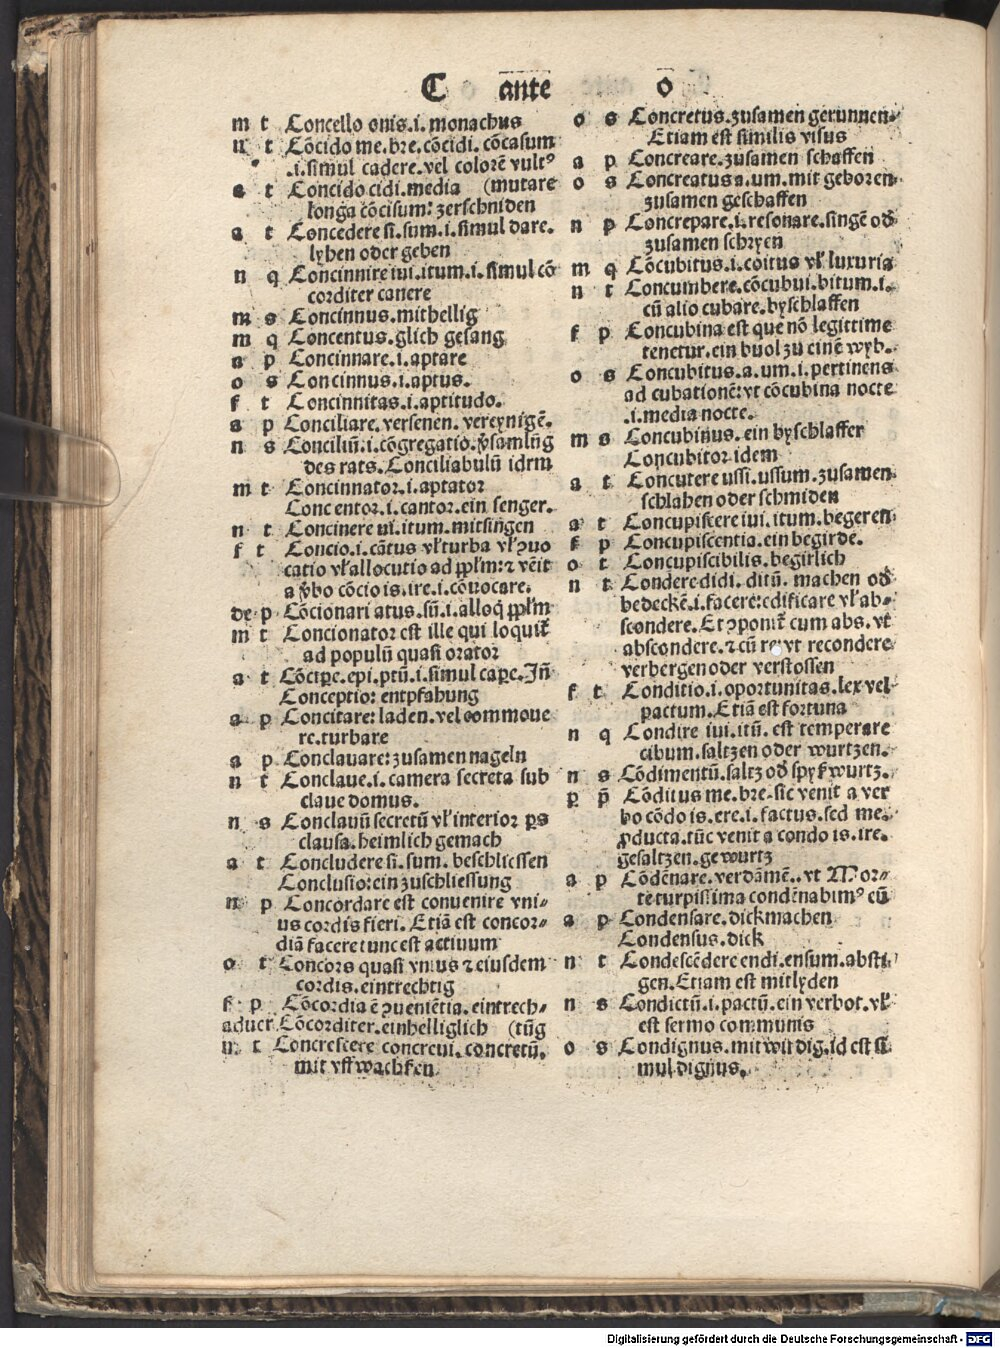 C ante o
m t Concello onis.i.monachus
n t Cõcido me.bre.cõcidi.cõcasum
.i.simul cadere.vel colorẽ vultꝰ
a t Concido cidi.media (mutare
longa cõcisum: zerschniden
a t Concedere si.sum.i.simul dare.
lyhen oder geben
n q Concinnire iui.itum.i.simul cõ
corditer canere
m s Concinnus.mithellig
m q Concentus.glich gesang
a p Concinnare.i.aptare
o s Concinnus.i.aptus.
f t Concinnitas.i.aptitudo.
a p Conciliare.versenen.vereynigẽ.
n s Conciliũ.i.cõgregatio.v̓samlũg
des rats.Conciliabulũ idem
m t Concinnator.i.aptator
Concentor.i.cantor.ein senger.
n t Concinere ui.itum.mitsingen
f t Concio.i.cãtus vl̓ turba vl̓ ꝯuo
catio vl̓ allocutio ad ppl̓m: ⁊ vẽit
a v̓bo cõcio is.ire.i.cõuocare.
de p Cõcionari atus.sũ.i.alloq̃ ppl̓m
m t Concionator est ille qui loquit᷑
ad populũ quasi orator
a t Cõcipe̅.epi.ptũ.i.simul cape̅.Jñ
Conceptio: entpfahung
a p Concitare: laden.vel commoue
re.turbare
a p Conclauare: zusamen nageln
n t Conclaue.i.camera secreta sub
claue domus.
n s Conclauũ secretũ vl̓ interior ps
clausa.heimlich gemach
a t Concludere si.sum.beschliessen
Conclusio: ein zuschliessung
n p Concordare est conuenire vni⸗
us cordis fieri.Etiã est concor⸗
diã facere tunc est actiuum
o t Concors quasi vnius ⁊ eiusdem
cordis.eintrechtig
f p Cõcordia ẽ ꝯueniẽtia.eintrech⸗
aduer Cõcorditer.einhelliglich (tũg
n t Concrescere concreui.concretũ.
mit vffwachsen
o s Concretus.zusamen gerunnen.
Etiam est similis visus
a p Concreare.zusamen schaffen
o s Concreatus a.um.mit geboren
zusamen geschaffen
n p Concrepare.i.resonare.singẽ od̓
zusamen schryen
m q Cõcubitus.i.coitus vl̓ luxuria
n t Concumbere.cõcubui.bitum.i.
cũ alio cubare.byschlaffen
f p Concubina est que nõ legittime
tenetur.ein buol zu einẽ wyb.
o s Concubitus.a.um.i.pertinens
ad cubationẽ: vt cõcubina nocte
.i.media nocte.
m s Concubinus.ein byschlaffer
Concubitor idem
a t Concutere ussi.ussum.zusamen
schlahen oder schmiden
a t Concupiscere iui.itum.begeren
f p Concupiscentia.ein begirde.
o t Concupiscibilis.begirlich
n t Condere didi.ditũ.machen od̓
bedeckẽ.i.facere: edificare vl̓ ab⸗
scondere.Et ꝯponit᷑ cum abs.vt
abscondere.⁊ cũ re.vt recondere
verbergen oder verstossen
f t Conditio.i.oportunitas.lex vel
pactum.Etiã est fortuna
n q Condire iui.itũ.est temperare
cibum.saltzen oder wurtzen.
n s Cõdimentũ.saltz od̓ spyß wurtz.
p p̃ Cõditus me.bre.sic venit a ver
bo cõdo is.ere.i.factus.sed me.
ꝓducta.tũc venit a condo is.ire.
gesaltzen.gewurtz
a p Cõdẽnare.verdãmẽ..vt Mor⸗
te turpissima condẽnabimꝰ eũ
a p Condensare.dickmachen
Condensus.dick
n t Condescẽdere endi.ensum.absti
gen.Etiam est mitlyden
n s Condictũ.i.pactũ.ein verbot.vl̓
est sermo communis
o s Condignus.mitwirdig.id est si
mul dignus.
Digitalisierung gefördert durch die Deutsche Forschungsgemeinschaft - DFG